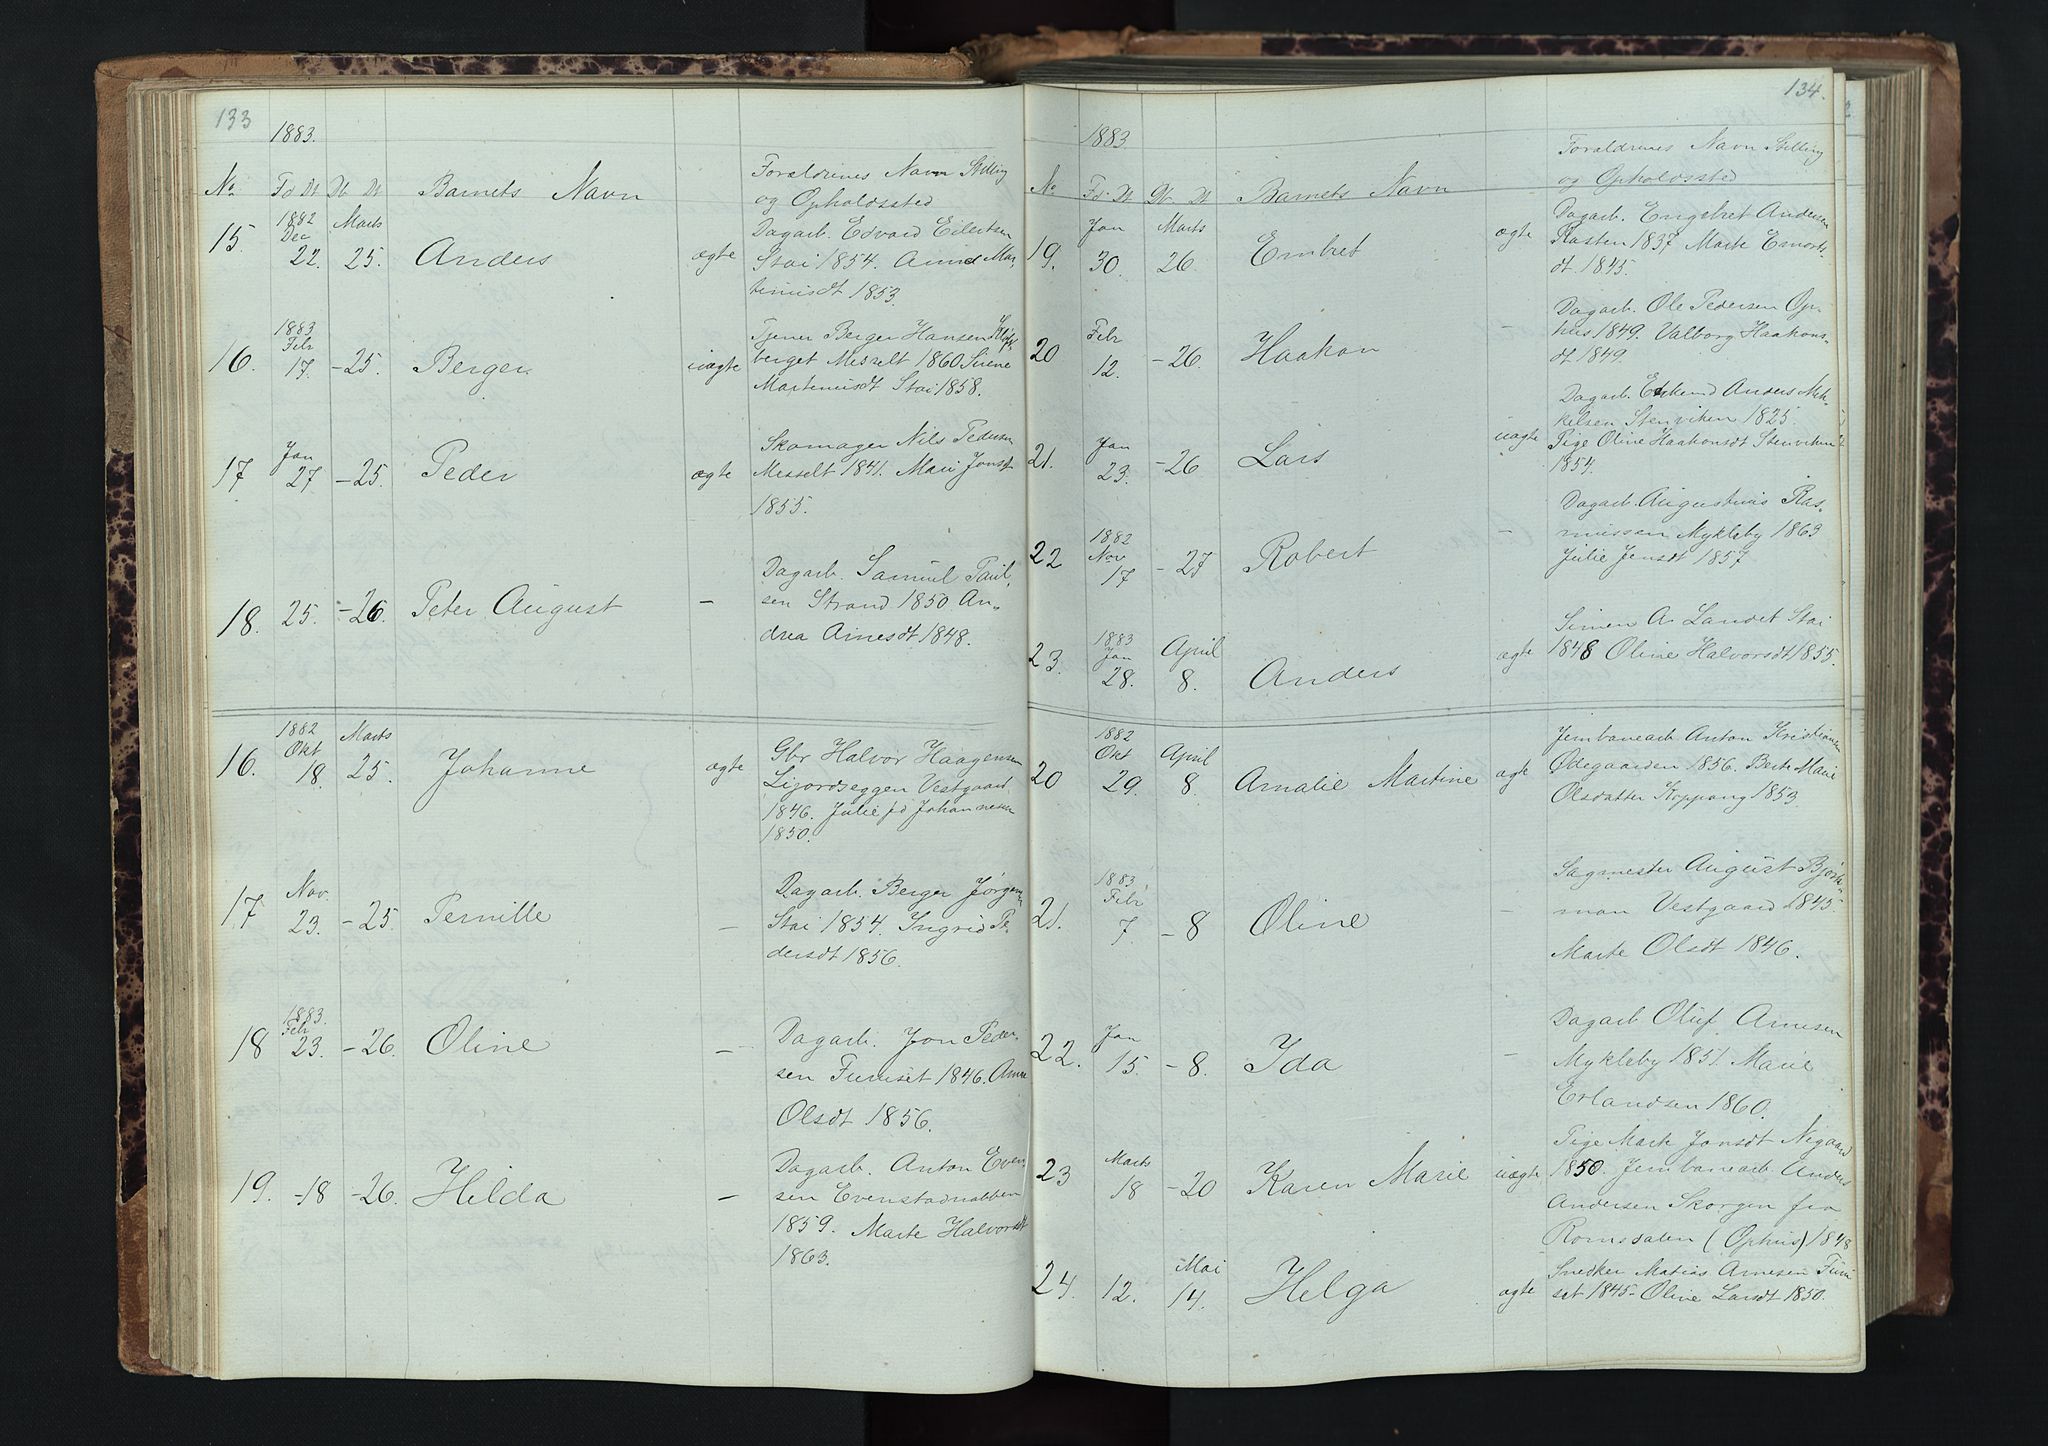 133
1883.
No Fd Dt Db Dt Barnets Navn Forældrenes Navn Stilling
og Opholdssted
15. 1882 Dec 22. Marts 25. Anders ægte Dagarb. Edvard Eilertsen
Stai 1854. Anne Mar-
tinusdt 1853.
16. 1883 Febr 17. - 25. Berger uægte Tjener Berger Hansen
berget Messelt 1860 Sirene
Martinusdt Stai 1858.
17 Jan 27 - 25. Peder ægte Skomager Nils Pedersen
Messelt 1841. Mari Jonsdt
1855.
18. 25. - 26 Peter August - Dagarb. Samuel Paul-
sen Strand 1850 An-
drea Arnesdt 1848.
16. 1882 Okt 18. Marts 25. Johanne ægte Gbr Halvor Haagensen
Lijordseggen Vestgaard
1846. Julie fd Johannesen
1850.
17 Nov. 23. - 25. Pernille - Dagarb. Berger Jørgensen
Stai 1854. Ingrid Pe-
dersdt 1856.
18 1883. Febr 23. - 26. Oline - Dagarb. Jon Peder-
sen Furuset 1846. Anne
Olsdt 1856.
19. - 18 - 26. Hilda - Dagarb. Anton Even-
sen Evenstadnabben
1859. Marte Halvorsdt
1863.
134.
1883
No Fd. Dt Db Dt Barnets Navn Forældrenes Navn Stilling
og Opholdssted
19. Jan 30. Marts 26. Embret ægte Dagarb. Engebret Andersen
Rasten 1837 Marte
dt. 1845.
20 Febr 12. - 26. Haakon - Dagarb. Ole Pedersen Op-
hus 1849. Valborg Haakons-
dt 1849.
21. Jan 23. - 26 Lars uægte Dagarb. Enkemd Anders Mik-
kelsen Stenviken 1825.
Pige Oline Haakonsdt Stenviken
1854.
22 1882 Nov 17 - 27 Robert - Dagarb. Augustinus Ras-
mussen Mykleby 1863
Julie Jensdt 1857.
23. 1883 Jan 28. April 8. Anders ægte Simen A. Landet Stai
1848 Oline Halvorsdt 1855.
20 1882 Okt 29. April 8. Amalie Martine ægte Jernbanearb Anton Kristiansen
Ødegaarden 1856. Berte Marie
Olsdatter Koppang 1853.
21. 1883 Febr 7. - 8 Oline - Sagmester August Björk-
man Vestgaard 1845.
Marte Olsdt 1846.
22. Jan 15. - 8. Ida - Dagarb Oluf Arnesen
Mykleby 1851. Marie
Erlandsen 1860.
23 Marts 18 - 20 Karen Marie uægte Pige Marte Jonsdt Nigaard
1850. Jernbanearb. Anders
Andersen Skorgen fra
Romsdalen (Ophus) 1848
24. 12. Mai 14. Helga ægte Snedker Matias Arnesen Furu
set 1845. Oline Larsdt 1850.